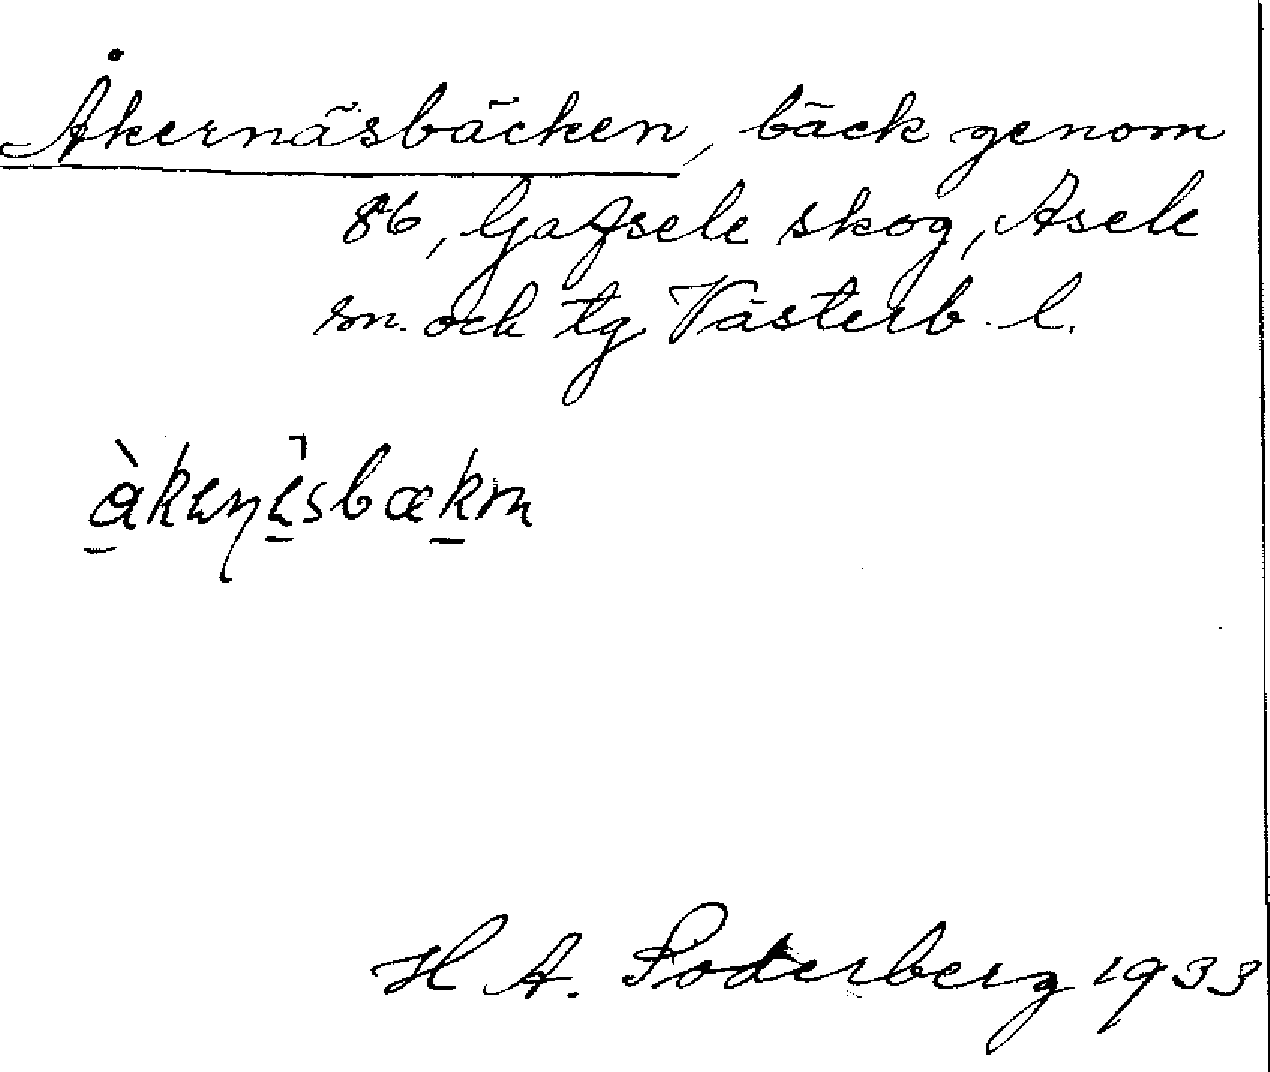 Åkernäsbäcken, bäck genom
86, Gafsele skog, Åsele
sn. och tg. Västerb. l.
H A. Söderberg 1933